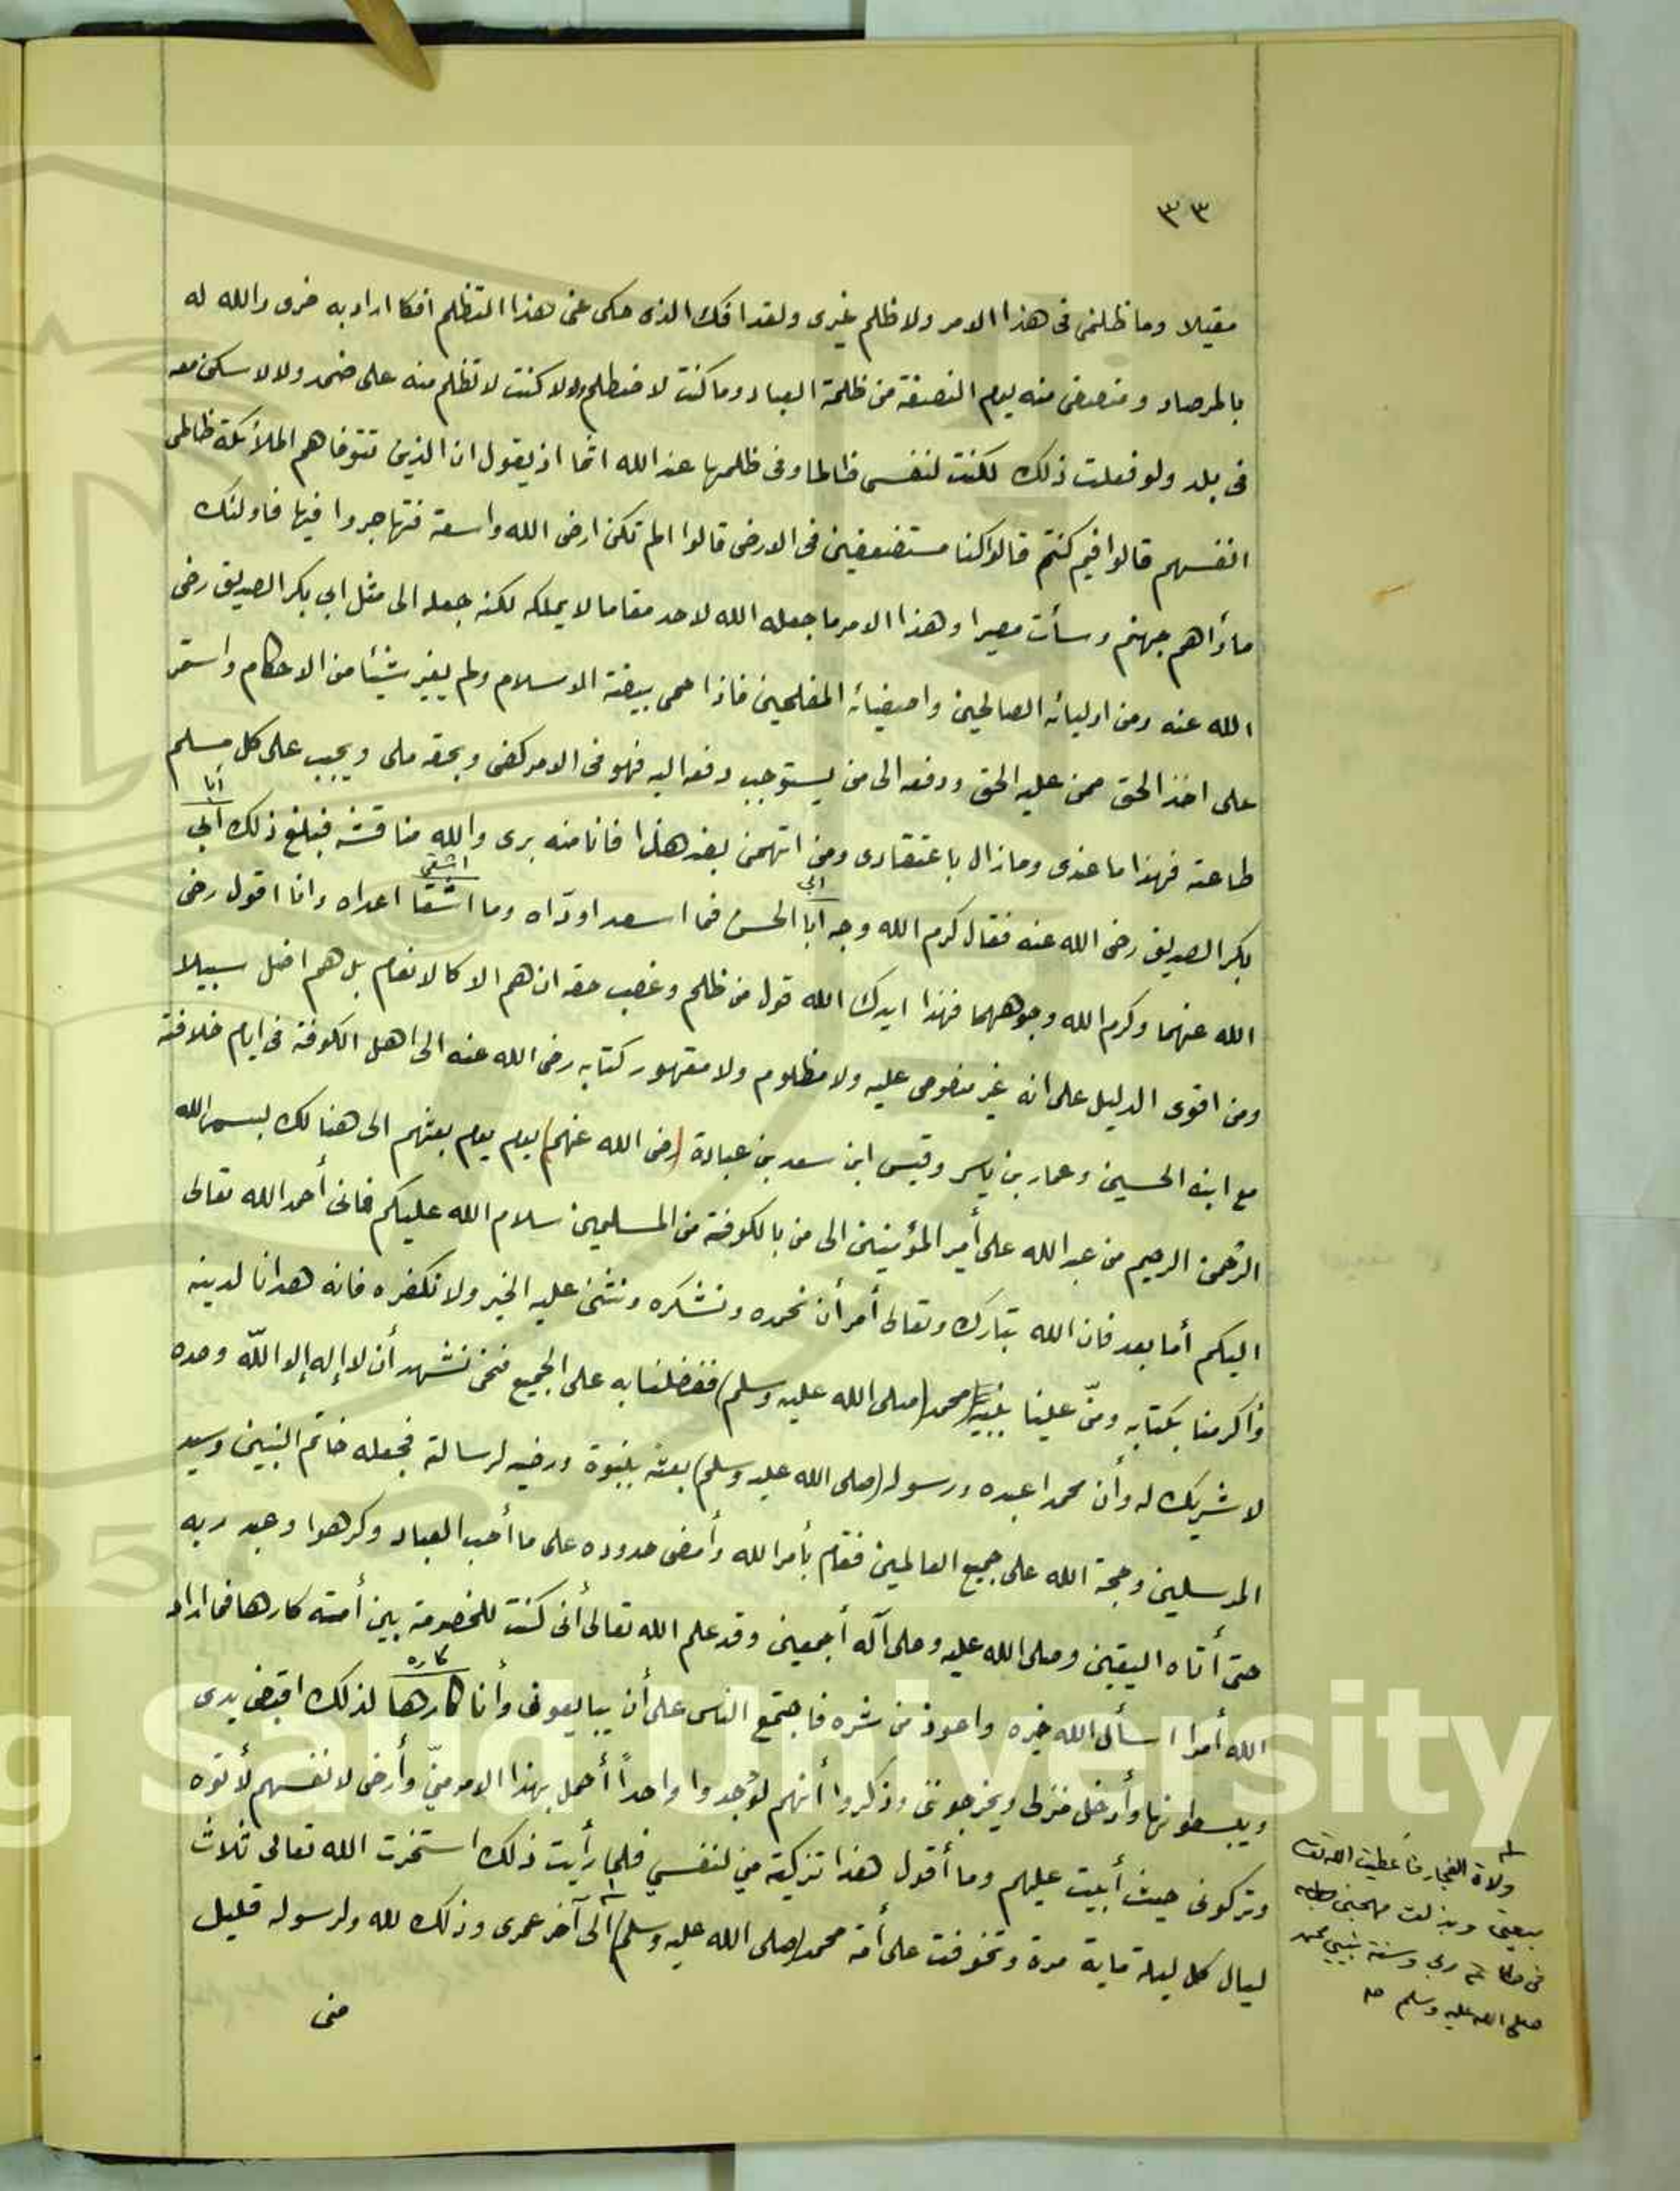 ٣٣
مقيلا وما ظلمنى فى هذا الامر ولا ظلم غيرى ولقد افك الذى حكى عنى هذا التظلم افكا اراد به ضرى والله له
بالمرصاد ومنصفى منه يوم النصفة من ظلمة العباد وما كنت لا منظلم ولا كنت لا تظلم منه على ضمد ولا لاسكن معه
فى بلد ولو فعلت ذلك لكنت لنفسى ظالما وفى ظلمها عند الله اثما اذ يقول ان الذين تتوفاهم الملائكة ظالمى
انفسهم قالوا فيم كنتم قالوا كنا مستضعفين فى الارض قالوا الم تكن ارض الله واسعة فتهاجروا فيها فاولئك
مأواهم جهنم وسأت مصيرا وهذا الامر ما جعله الله لاحد مقاما لا يملكه لكنه جعله الى مثل ابى بكر الصديق رضى
الله عنه ومن اوليائه الصالحين واصفيائه المفلحين فاذا حمى بيضة الاسلام ولم يغير شيئا من الاحكام واستمر
على اخذ الحق ممن عليه الحق ودفعه الى من يستوجب دفعه اليه فهو فى الامر كفى وبحقه ملى ويجب على كل مسلم
طاعته فهذا ما عندى وما زال باعتقادى ومن اتهمنى بغير هذا فانا منه برى والله مناقشه فبلغ ذلك ابى
أبا
بكر الصديق رضى الله عنه فقال كرم الله وجه أبا الحسن فما اسعد اودّاه وما اشقا اعداه وانا اقول رضى
ابى
اشقى
الله عنهما وكرم الله وجوههما فهذا ايدك الله قول من ظلم وغصب حقه ان هم الا كالانعام بل هم اضل سبيلا
ومن اقوى الدليل على انه غير منصوص عليه ولا مظلوم ولا مقهور كتابه رضى الله عنه الى اهل الكوفة فى ايام خلافته
مع ابنه الحسين وعمار بن ياسر وقيس ابن سعد بن عبادة (رضى الله عنهم) يوم يوم بعثهم الى هنالك بسم الله
الرحمن الرحيم من عبد الله على أمير المؤمنين الى من بالكوفة من المسلمين سلام الله عليكم فانى أحمد الله تعالى
اليكم أما بعد فان الله تبارك وتعالى أمر أن نحمده ونشكره ونثنى عليه الخير ولا نكفره فانه هدانا لدينه
وأكرمنا بكتابه ومنّ علينا بنبيه محمد (صلى الله عليه وسلم) ففضلنا به على الجميع فنحن نشهد أن لا إله إلا اللّه وحده
لا شريك له وأن محمدا عبده ورسوله (صلى الله عليه وسلم) بعثه بنبوة ورضيه لرسالة فجعله خاتم النبيين وسيد
المرسلين وحجة الله على جميع العالمين فقام بأمر الله وأمضى حدوده على ما أحب العباد وكرهوا وعبد ربه
حتى أتاه اليقين وصلى الله عليه وعلى آله أجمعين وقد علم الله تعالى أنى كنت للخصومة بين أمته كارها فما اراد
الله أمرا اسأل الله خيره واعوذ من شره فاجتمع الناس على أن يبايعونى وأنا كارها لذلك اقبض يدى
كاره
ويبسطونها وأدخل منزلى ويخرجوننى وذكروا أنهم لو وجدوا واحداً أحمل بهذا الامر منّي وأرضى لانفسهم لأتوه
وتركونى حيث أبيت عليهم وما أقول هذا تزكية مني لنفسي فلما رأيت ذلك استخرت الله تعالى ثلاث
ليال كل ليلة ماية مرة وتخوفت على أمة محمد (صلى الله عليه وسلم) الى آخر عمرى وذلك لله ولرسوله قليل
منى
ولاة الفجار فأعطيت الله
بيعتى وبذلت مهجتى
فى ربي وسنة نبيي محمد
صلى الله عليه وسلم